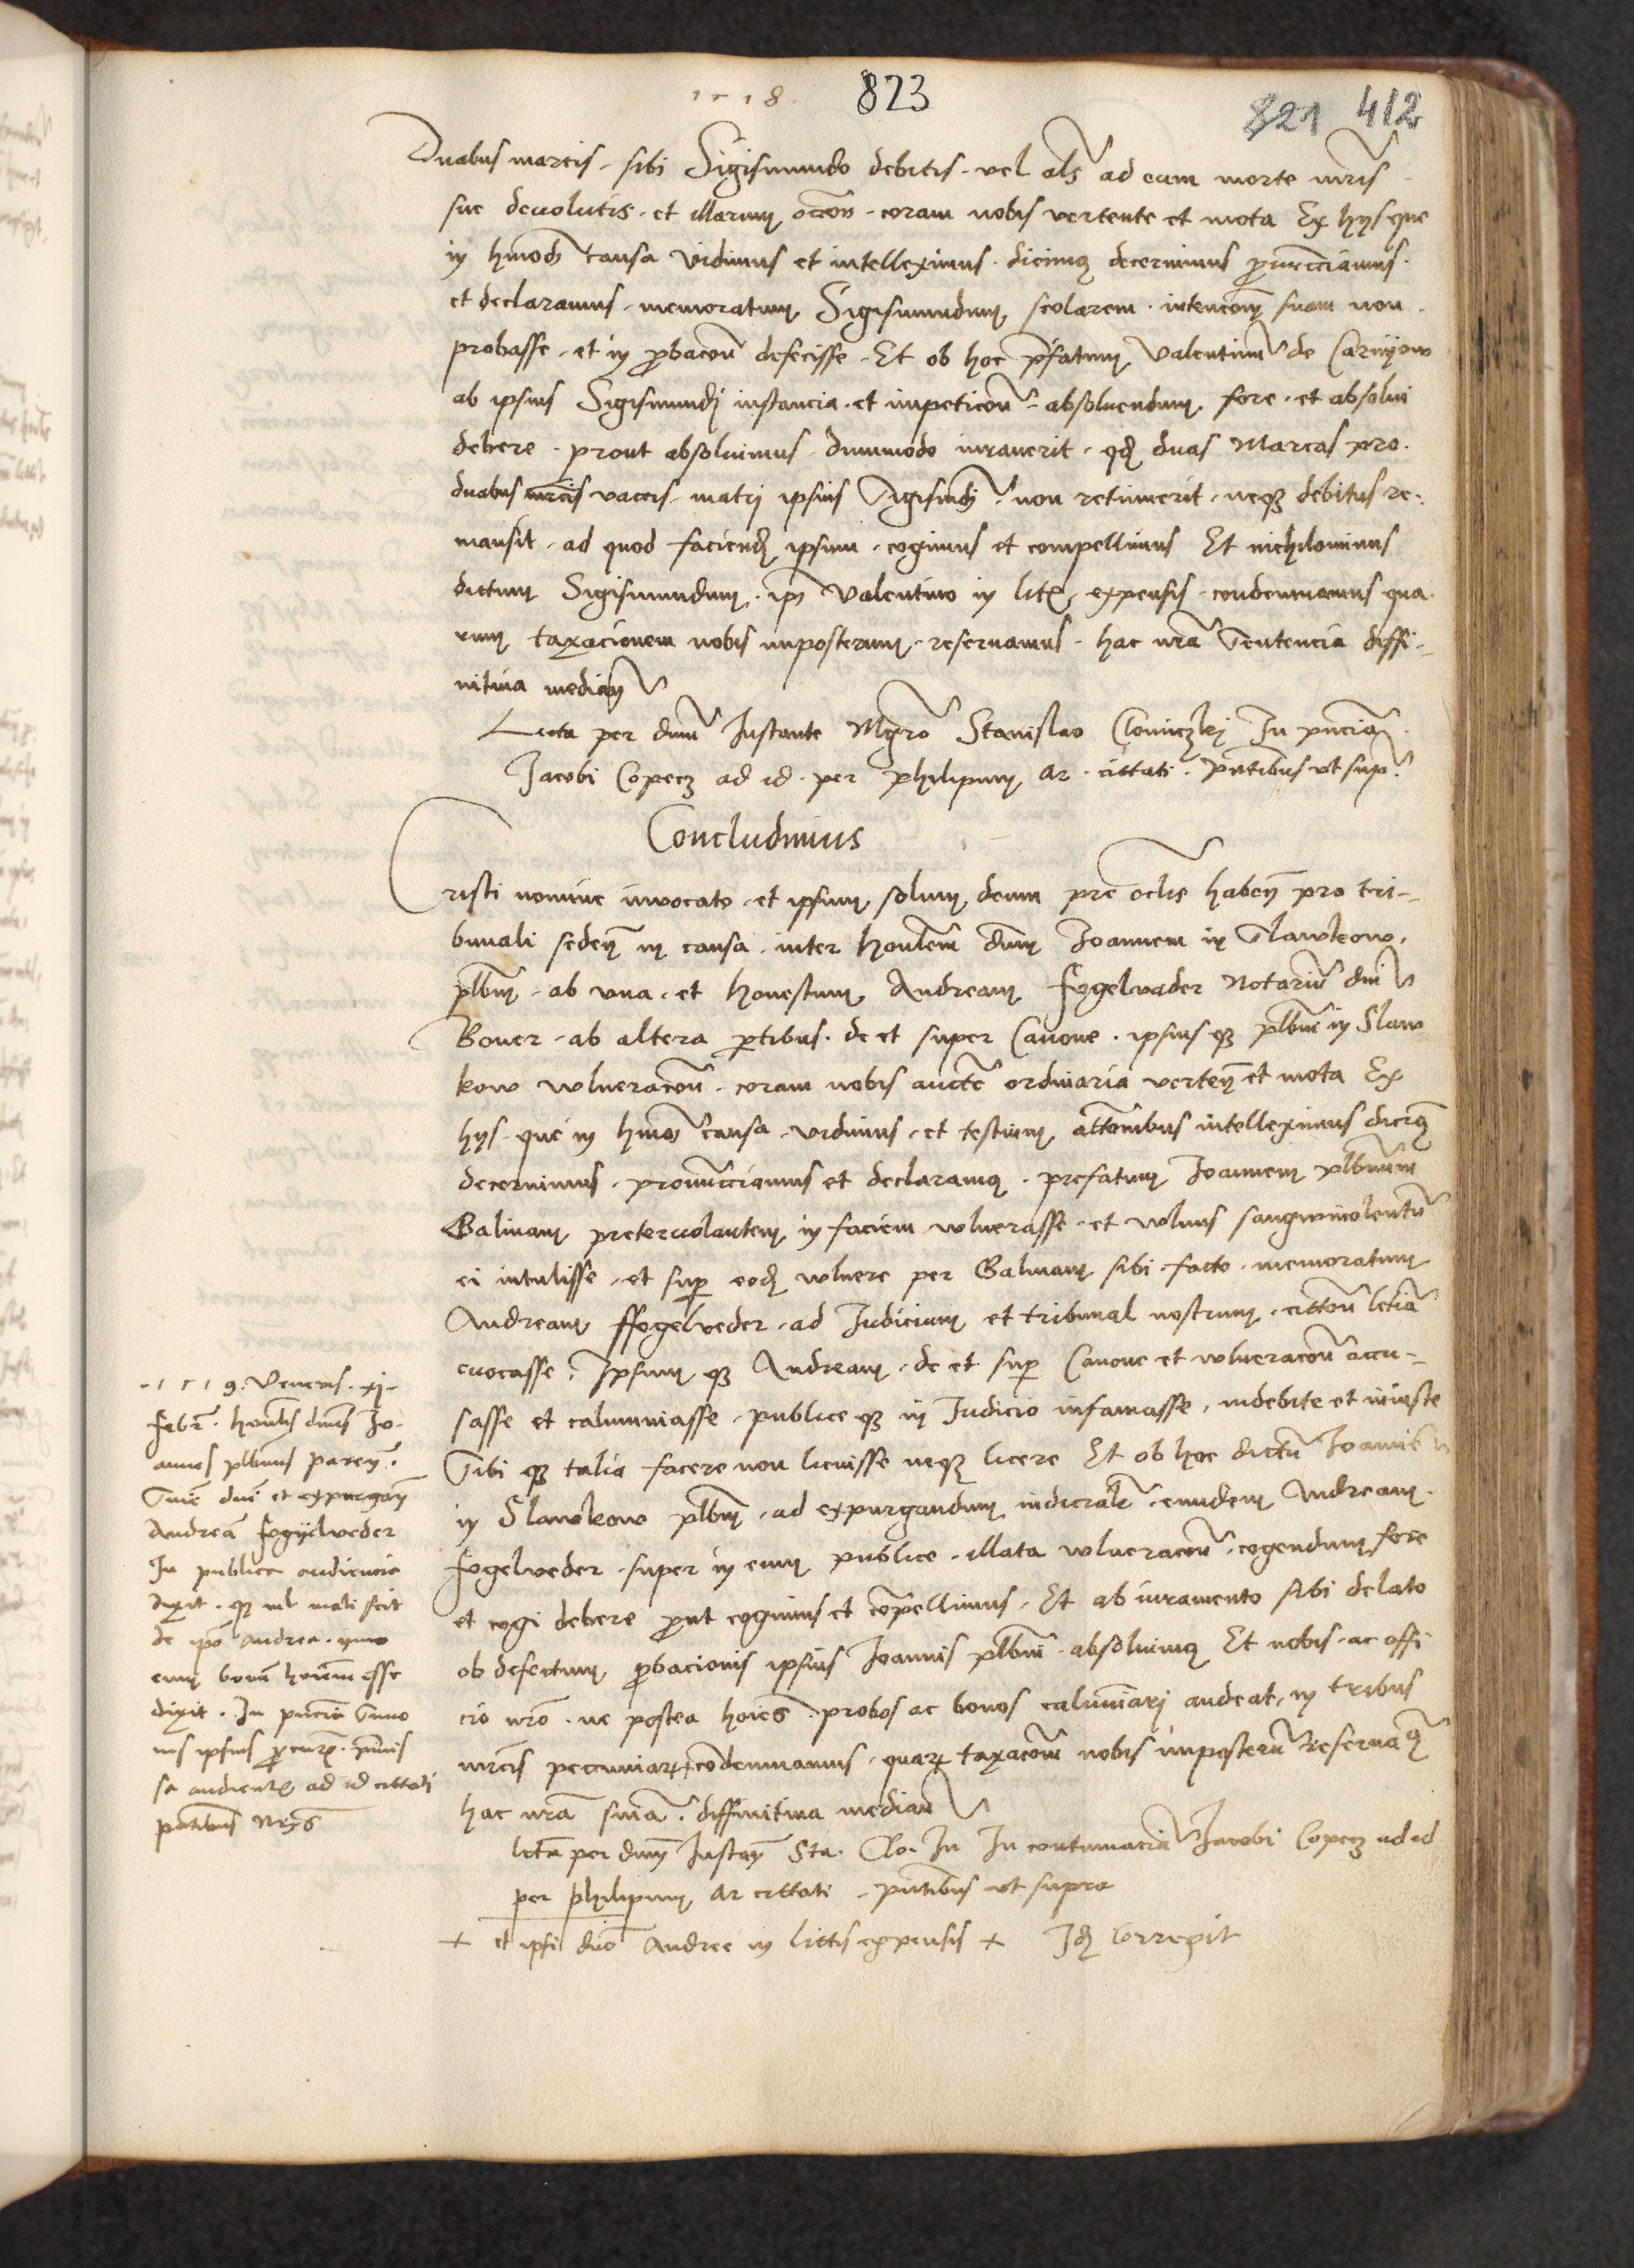 1518. 823
821 412
Duabus marcis sibi Sigismundo debitis vel als ad eam morte mris
sue devolutis et illarum occon coram nobis vertente et mota Ex hys que
in hmodi causa vidimus et intelleximus dicimus decernimus pronucciamus
et declaramus memoratum Sigismundum scolarem intenconem suam non
probasse et in probacon defecisse Et ob hoc prefatum Valentinum de Carnyow
ab ipsius Sigismundi instancia et impeticon absolvendum fore et absolvi
debere prout absolvimus dummodo iuraverit qd duas Marcas pro
duabus vaccis matri ipsius Sigismdi non retinuerit neque debitus re-
mansit ad quod faciend ipsum cogimus et compellimus Et nichilominus
dictum Sigismundum ipi Valentino in litis expensis condemnamus qua-
rum taxacionem nobis imposterum reservamus hac nra Sentencia diffi-
nitiva median
Lecta per dnum Instante Mgro Stanislao Cloniczkj In pncia
Jacobi Copecz ad id per philipum ar cittati pntibus ut sup
Concludimus
Cristi nomine invocato et ipsum solum deum pre oclis haben pro tri-
bunali seden in causa inter honlem dnum Joannem in Slawkow
plbnm ab una et honestum Andream Fogelvader Notarium dni
Boner ab altera partibus de et super Canone ipsiusque plbni in Slaw
kow vulneracon coram nobis aucte ordinaria verten et mota Ex
hys que in hmoi causa vidimus et testium attonibus intelleximus dicimus
decernimus pronucciamus et declaramus prefatum Joannem plbnum
Galinam pretervolantem in faciem vulnerasse et vulnus sangwinolentum
ei intulisse et super eod vulnere per Galinam sibi facto memoratum
Andream ffogelveder ad Judicium et tribunal nostrum citton letia
evocasse Ipsumque Andream de et super Canone et vulneracon accu-
sasse et calumniasse publiceque in Judicio infamasse indebite et iniuste
Sibique talia facere non licuisse neque licere Et ob hoc dictum Joannem
in Slawkow plbnm ad expurgandum iudicialr eundem Andream
Fogelveder super in eum publice illata vulneracon cogendum fore
et cogi debere prout cogimus et compellimus Et ab iuramento sibi delato
ob defectum probacionis ipsius Joannis plbni absolvimus Et nobis ac offi
cio nro ne postea hoies probos ac bonos calumniari audeat in tribus
mrcis pecuniar + condemnamus quar taxacom nobis imposterum reservamus
hac nra snia diffinitiva median
lecta per dnum Instan Sta. Clo. In In contumacia Jacobi Copecz ad id
per philipum ar cittati pntibus ut supra
+ et ipsi dno Andree in littis expensis + Id Correxit
1519. Veneris xj
Febr. honlis dnus Jo-
annes plbnus paren
Snie dni et expurgan
Andream Fogijelveder
In publica audiencia
dixit que nil mali scit
de ipo Andrea ymo
eum bonum hoiem esse
dixit In pncia
ipsius procur
audien ad id cittati
pntibus Nrys